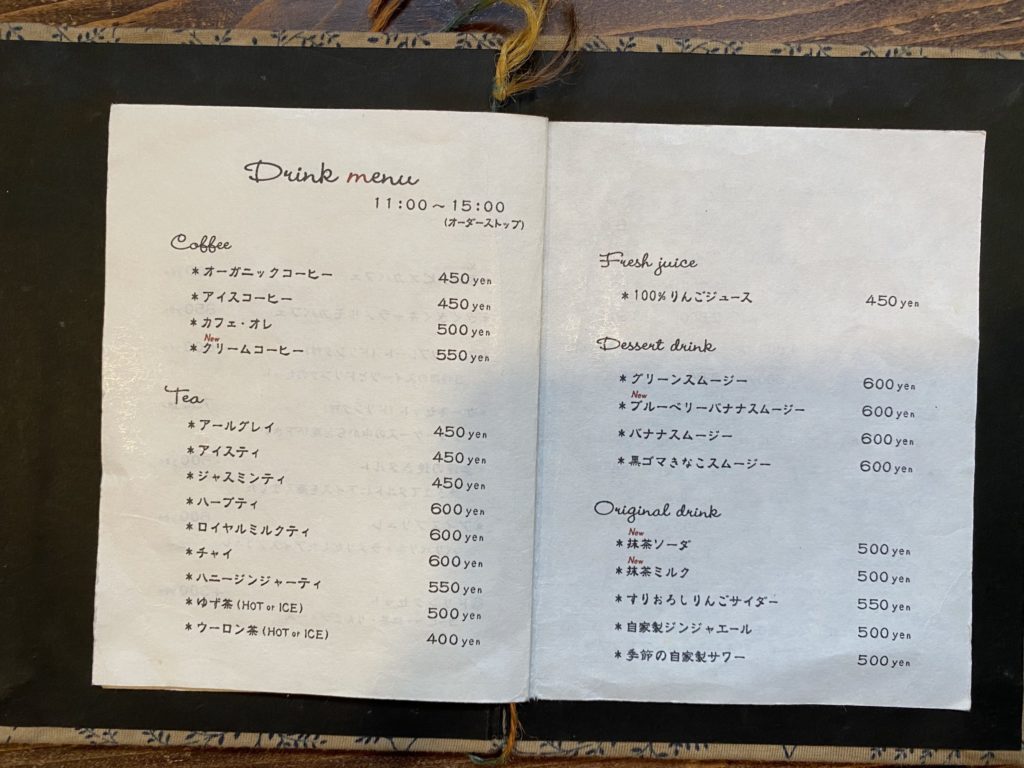 Drink menu
11:00～15:00
(オーダーストップ)
Coffee
＊オーガニックコーヒー 450yen
＊アイスコーヒー 450yen
＊カフェ・オレ 500yen
New
＊クリームコーヒー 550yen
Tea
＊アールグレイ 450yen
＊アイスティ 450yen
＊ジャスミンティ 450yen
＊ハーブティ 600yen
＊ロイヤルミルクティ 600yen
＊チャイ 600yen
＊ハニージンジャーティ 550yen
＊ゆず茶(HOT or ICE) 500yen
＊ウーロン茶(HOT or ICE) 400yen
Fresh juice
＊100%りんごジュース 450yen
Dessert drink
＊グリーンスムージー 600yen
New
＊ブルーベリーバナナスムージー 600yen
＊バナナスムージー 600yen
＊黒ゴマきなこスムージー 600yen
Original drink
New
＊抹茶ソーダ 500yen
New
＊抹茶ミルク 500yen
＊すりおろしりんごサイダー 550yen
＊自家製ジンジャエール 500yen
＊季節の自家製サワー 500yen